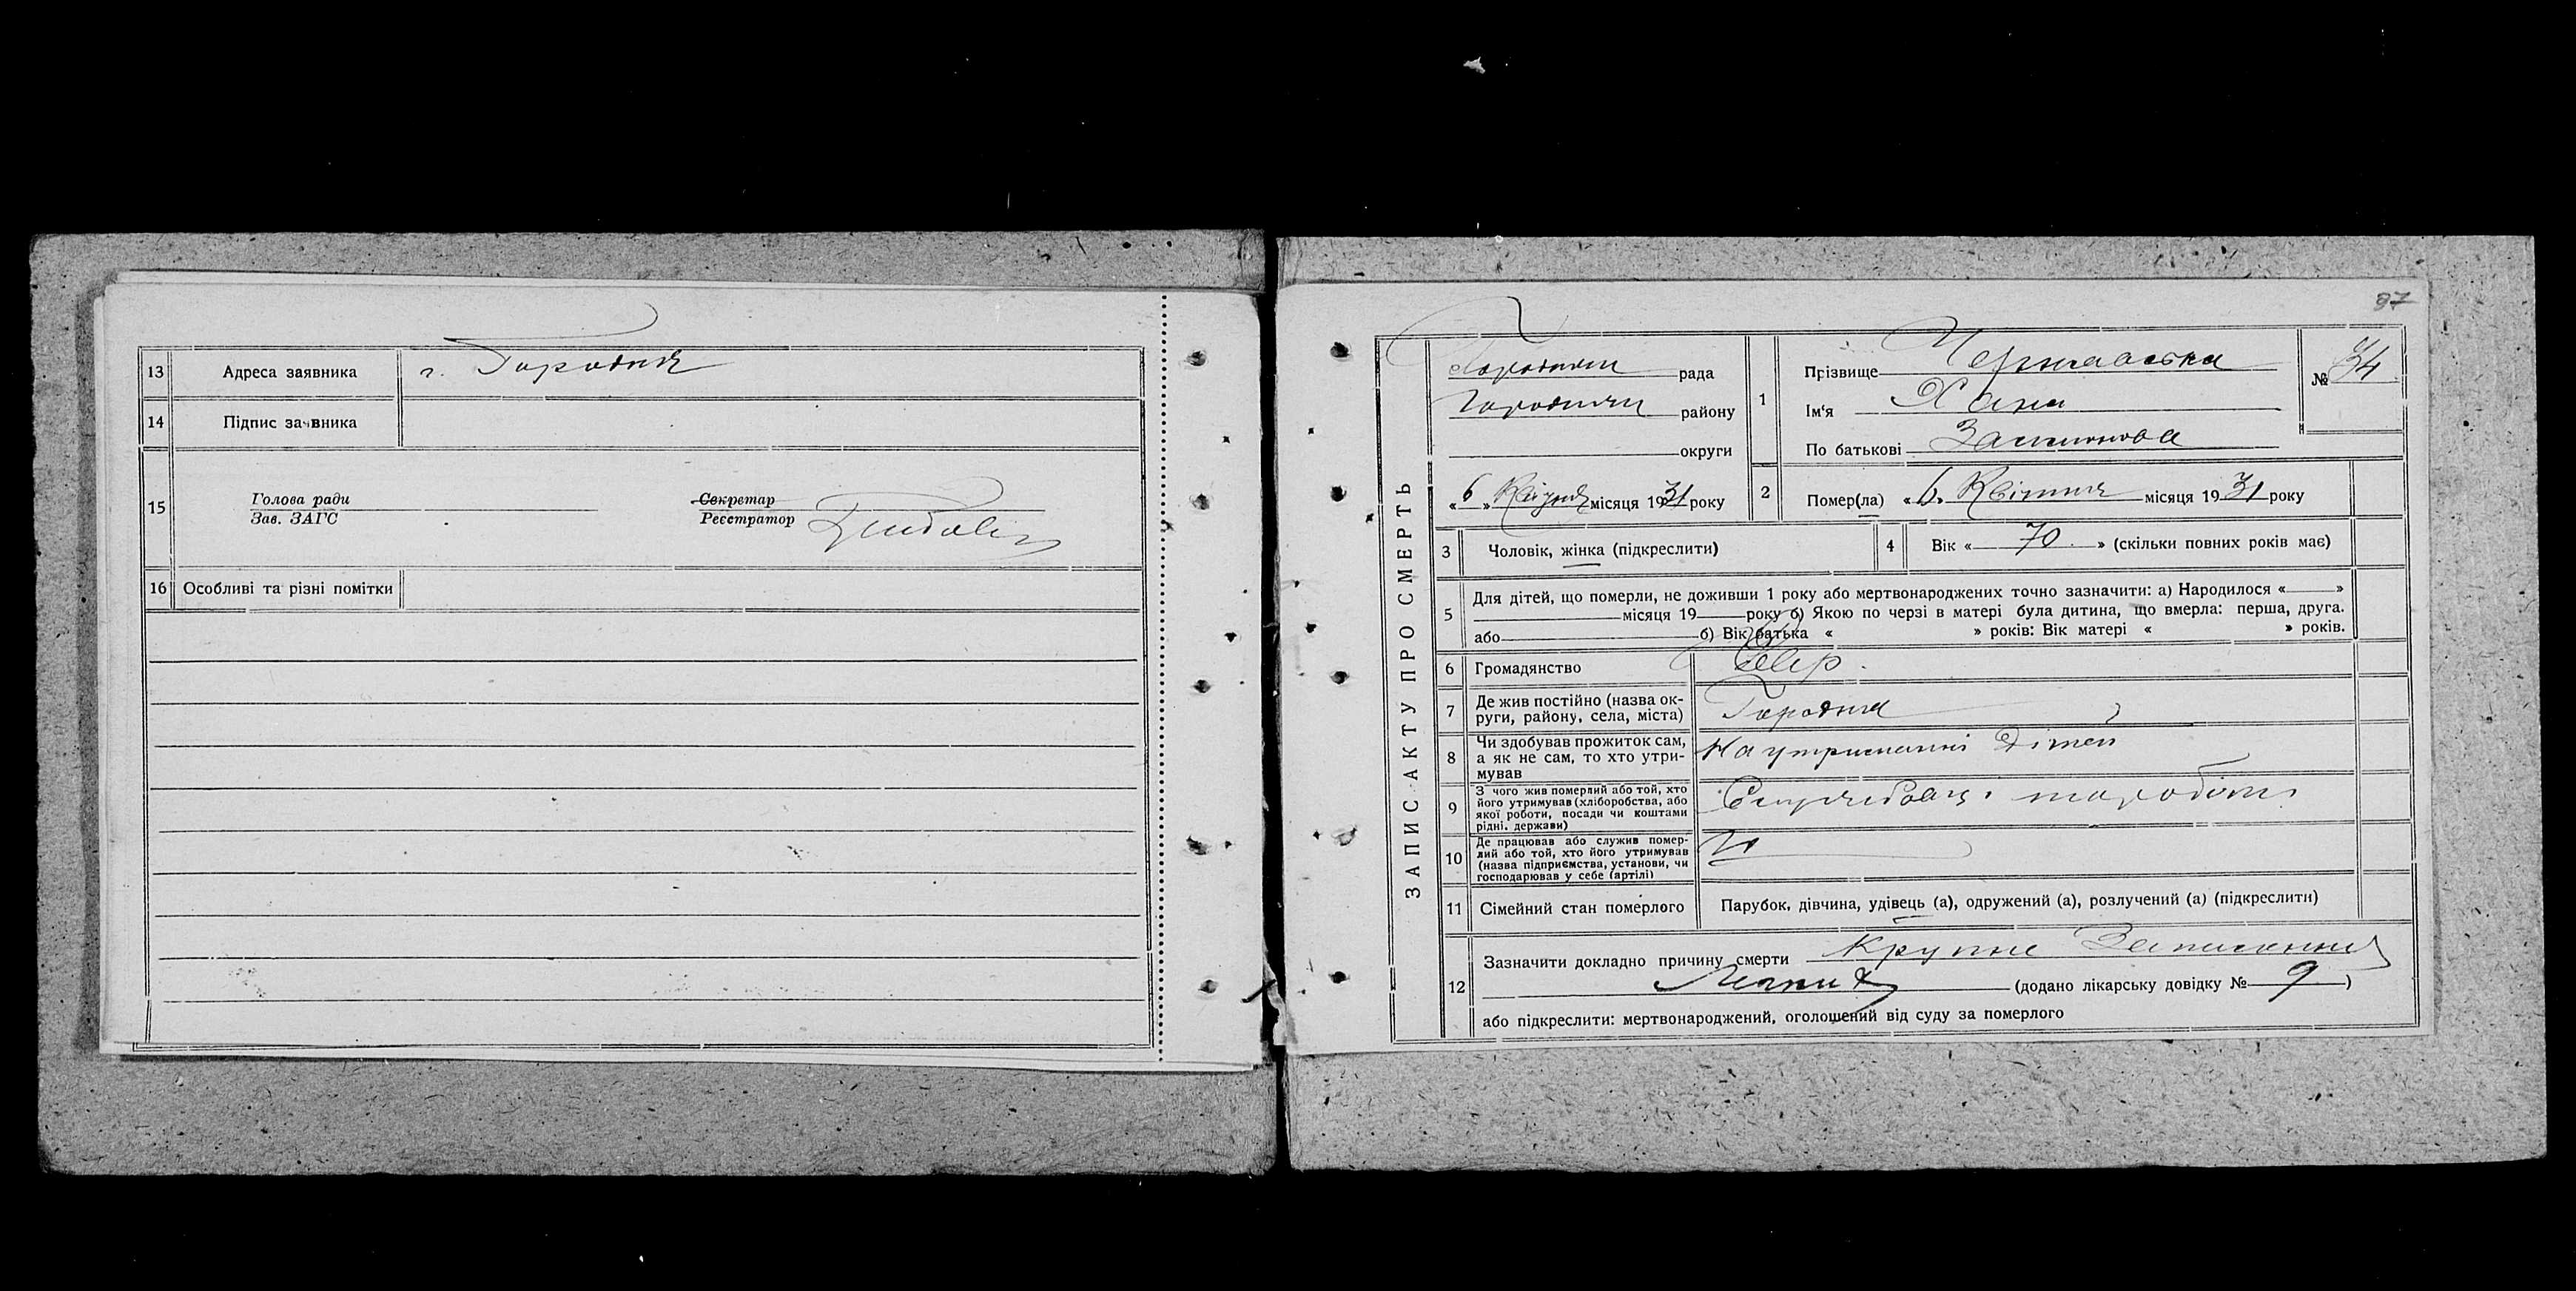 13 Адреса заявника г. Городня
14 Підпис заявника
15 Голова ради
Зав. ЗАГС
Секретар
Реєстратор
16 Особливі та різні помітки
97
ЗАПИС АКТУ ПРО СМЕРТЬ
рада
району
округи
« 6 » місяця 1931 року
1 Прізвище
Ім'я Хана
По батькові
№ 34
2 Помер(ла) « 6 » Квітня місяця 1931 року
3 Чоловік, жінка (підкреслити)
4 Вік « 70 » (скільки повних років має)
5 Для дітей, що померли, не доживши 1 року або мертвонароджених точно зазначити: а) Народилося « »
місяця 19 року б) Якою по черзі в матері була дитина, що вмерла: перша, друга.
або б) Вік батька « » років: Вік матері « » років.
6 Громадянство
7 Де жив постійно (назва ок-
руги, району, села, міста) Городня
8 Чи здобував прожиток сам,
а як не сам, то хто утри-
мував На утриманні дітей
9 З чого жив померлий або той, хто
його утримував (хліборобства, або
якої роботи, посади чи коштами
рідні, держави)
10 Де працював або служив помер-
лий або той, хто його утримував
(назва підприємства, установи, чи
господарював у себе (артілі)
11 Сімейний стан померлого Парубок, дівчина, удівець (а), одружений (а), розлучений (а) (підкреслити)
12 Зазначити докладно причину смерти Крупне Запалення
(додано лікарську довідку № 9 )
або підкреслити: мертвонароджений, оголошений від суду за померлого